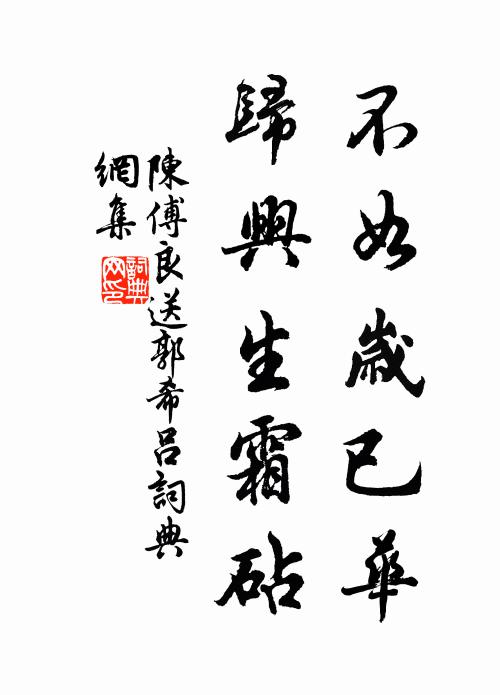 不知歲已華
歸興生霜砧
陳傅良送郭希呂詞典
網集
詞典
网印